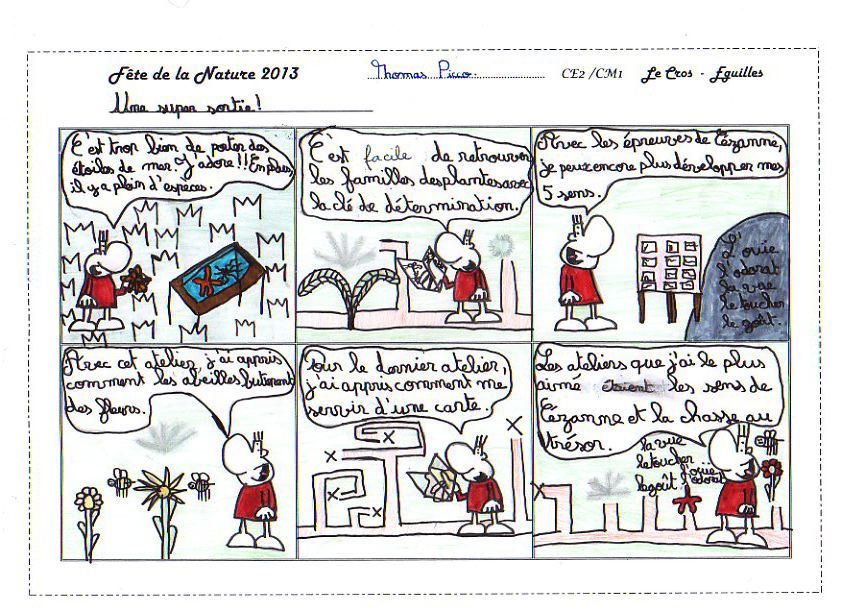 Fête de la Nature 2013
Thomas Picco.
CE2 /CM1
Le Cros - Eguilles
Une super sortie!
C'est trop bien de porter des
étoiles de mer. J'adore!! En plus,
il y a plein d'especes.
C'est facile de retrouver
les familles des plantes avec
la clé de détermination.
Avec les épreuves de Cézanne,
je peux encore plus développer mes
5 sens.
L'ouie
l'odorat
la vue
le toucher
le goût.
Avec cet atelier, j'ai appris
comment les abeilles butinent
des fleurs.
Pour le dernier atelier,
j'ai appris comment me
servir d'une carte.
Les ateliers que j'ai le plus
aimé étaient les sens de
Cézanne et la chasse au
trésor.
la vue
le toucher
l'ouie
le goût l'odorat